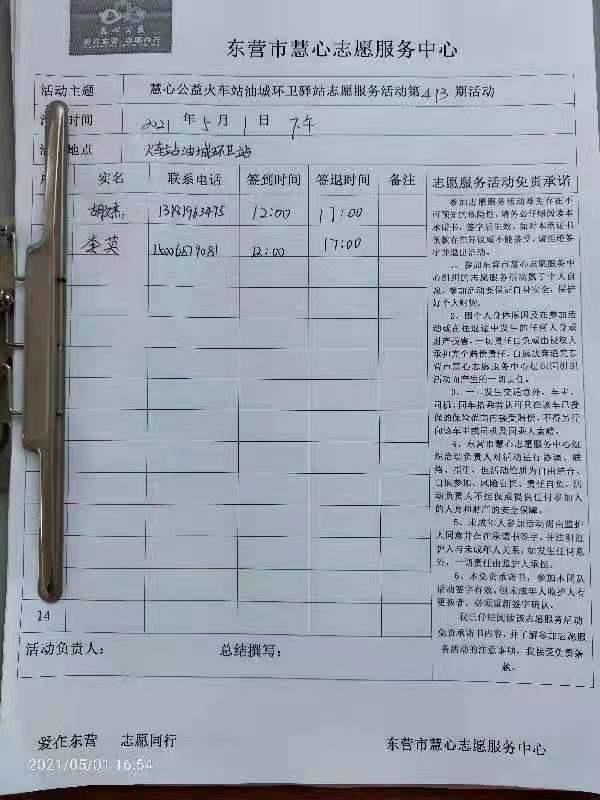 慧心公益
爱在东营·志愿同行
东营市慧心志愿服务中心
活动主题 慧心公益火车站油城环卫驿站志愿服务活动第413期活动
时间 2021年5月1日 下午
地点 火车站油城环卫站
实名 联系电话 签到时间 签退时间 备注 志愿服务活动免责承诺
12:00 17:00
李英 15006879081 12:00 17:00
参加志愿服务活动难免存在不
可预知的危险性，请务必仔细阅读本
承诺书，签字后生效，如对本承诺书
条款存在异议或不能接受，请拒绝签
字并退出活动。
1、参加东营市慧心志愿服务中
心组织的志愿服务活动属于个人自
愿，参加活动要保证自身安全，保护
好个人财物。
2、因个人身体原因及在参加活
动或在往返途中发生的任何人身或
财产损害，一切责任自负或由侵权人
承担完全赔偿责任，自愿放弃追究东
营市慧心志愿服务中心及组织
活动而产生的一切责任。
3、一旦发生交通意外，车主、
司机、同车搭乘者认可只在该车已投
保的保险范围内接受赔偿，不得另行
向该车主或司机及同乘人索赔。
4、东营市慧心志愿服务中心组
织活动负责人对活动进行协调、联
络、指引，但活动性质为自由结合、
自愿参加、风险自担、责任自负，活
动负责人不担保或提供任何参加人
的人身和财产的安全保障。
5、未成年人参加活动需由监护
人同意并在在承诺书签字，并注明监
护人与未成年人关系，如发生任何意
外，一切责任由监护人承担。
6、本免责承诺书，参加本团队
活动签字有效，但未成年人监护人有
更换者，必须重新签字确认。
我已仔细阅读该志愿服务活动
免责承诺书内容，并了解参加志愿服
务活动的注意事项，我接受免责条
款。
14
活动负责人： 总结撰写：
爱在东营 志愿同行 东营市慧心志愿服务中心
2021/05/01 16:54